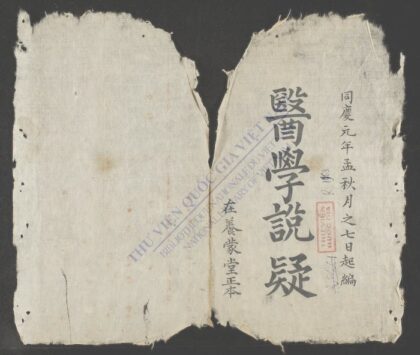 同慶元年孟秋月之七日起編
醫學說疑
在養蒙堂正本
THƯ VIỆN QUỐC GIA VIỆT
BIBLIOTHÈQUE NATIONALE DU VIET
NATIONAL LIBRARY OF VIET